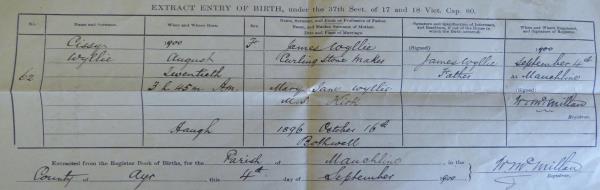 EXTRACT ENTRY OF BIRTH, under the 37th Sect. of 17 and 18 Vict. Cap. 80.
No. Name and Surname. When and Where Born. Sex. Name, Surname, and Rank or Profession of Father. Name, and Maiden Surname of Mother. Date and Place of Marriage. Signature and Qualification of Informant, and Residence, if out of the House in which the Birth occurred. When and Where Registered, and Signature of Registrar.
Cissy 1900 F James Wyllie (Signed) 1900
Wyllie August Curling Stone Maker James Wyllie September 4th
62 Twentieth Father At Mauchline
3 h 45 m A.M. Mary Jane Wyllie (Signed)
M.S. Kirk W. McMillan
Registrar.
Haugh 1896 October 16th
Bothwell
Extracted from the Register Book of Births, for the Parish of Mauchline in the
County of Ayr this 4th day of September 1900 W McMillan
Registrar.